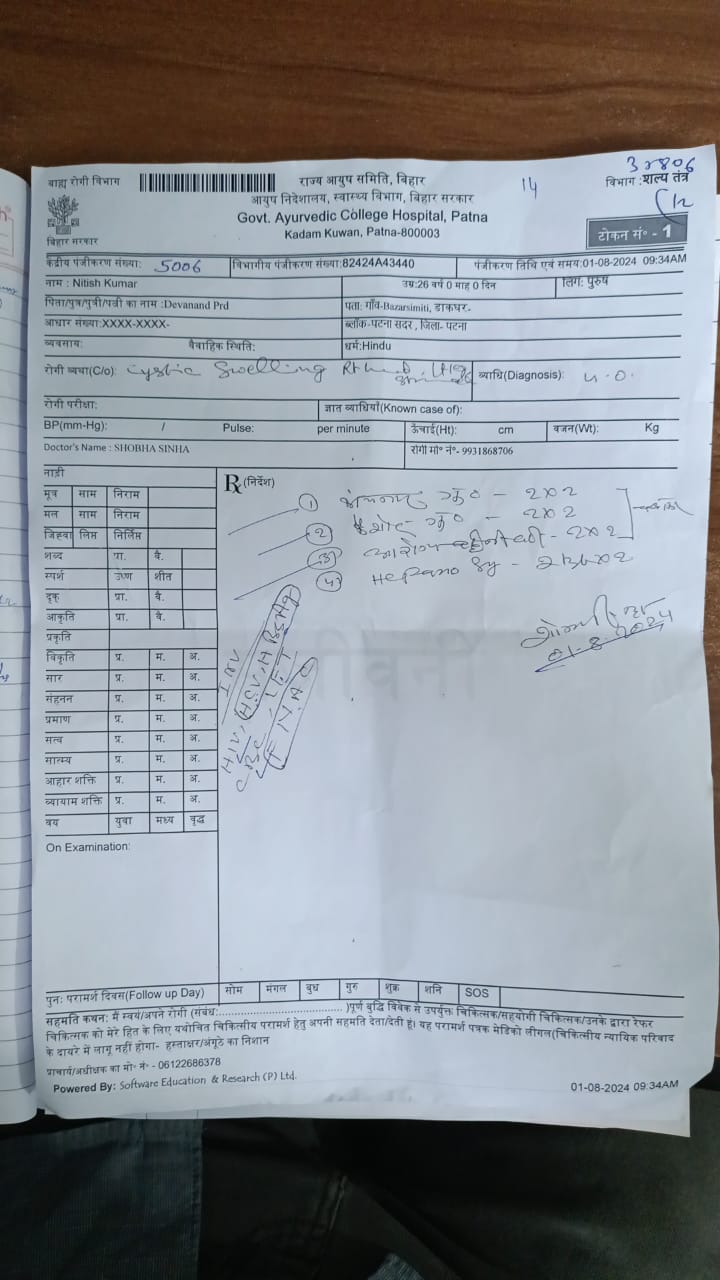 32806
बाह्य रोगी विभाग राज्य आयुष समिति, बिहार 14 विभाग : शल्य तंत्र
आयुष निदेशालय, स्वास्थ्य विभाग, बिहार सरकार
Govt. Ayurvedic College Hospital, Patna
Kadam Kuwan, Patna-800003
बिहार सरकार
टोकन सं० - 1
केंद्रीय पंजीकरण संख्या: 5006 विभागीय पंजीकरण संख्या:82424A43440 पंजीकरण तिथि एवं समय:01-08-2024 09:34AM
नाम : Nitish Kumar उम्र:26 वर्ष 0 माह 0 दिन लिंग: पुरुष
पिता/पुत्र/पुत्री/पत्नी का नाम :Devanand Prd पता: गाँव-Bazarsimiti, डाकघर-
आधार संख्या:XXXX-XXXX- ब्लॉक-पटना सदर , जिला- पटना
व्यवसाय: वैवाहिक स्थिति: धर्म:Hindu
रोगी व्यथा(C/o): Cystic Swelling Rt व्याधि(Diagnosis):
रोगी परीक्षा: ज्ञात व्याधियाँ(Known case of):
BP(mm-Hg): / Pulse: per minute ऊँचाई(Ht): cm वजन(Wt): Kg
Doctor's Name : SHOBHA SINHA रोगी मो० नं०- 9931868706
नाड़ी
Rx (निर्देश)
मूत्र साम निराम
मल साम निराम
जिह्वा लिप्त निर्लिप्त
शब्द प्रा. वै.
स्पर्श उष्ण शीत
दृक् प्रा. वै.
आकृति प्रा. वै.
प्रकृति
विकृति प्र. म. अ.
सार प्र. म. अ.
संहनन प्र. म. अ.
प्रमाण प्र. म. अ.
सत्व प्र. म. अ.
सात्म्य प्र. म. अ.
आहार शक्ति प्र. म. अ.
व्यायाम शक्ति प्र. म. अ.
वय युवा मध्य वृद्ध
1 - 2x2
2 - 2x2
3 - 2x2
4 Sy -
01-8-2024
HIV, HCV, HBSAg
CBC, LFT
FNAC
On Examination:
पुनः परामर्श दिवस(Follow up Day) सोम मंगल बुध गुरु शुक्र शनि SOS
सहमति कथन: मैं स्वयं/अपने रोगी (संबंध:........................................)पूर्ण बुद्धि विवेक से उपर्युक्त चिकित्सक/सहयोगी चिकित्सक/उनके द्वारा रेफर
चिकित्सक को मेरे हित के लिए यथोचित चिकित्सीय परामर्श हेतु अपनी सहमति देता/देती हूं। यह परामर्श पत्रक मेडिको लीगल(चिकित्सीय न्यायिक परिवाद
के दायरे में लागू नहीं होगा- हस्ताक्षर/अंगूठे का निशान
प्राचार्य/अधीक्षक का मो० नं० - 06122686378
Powered By: Software Education & Research (P) Ltd. 01-08-2024 09:34AM